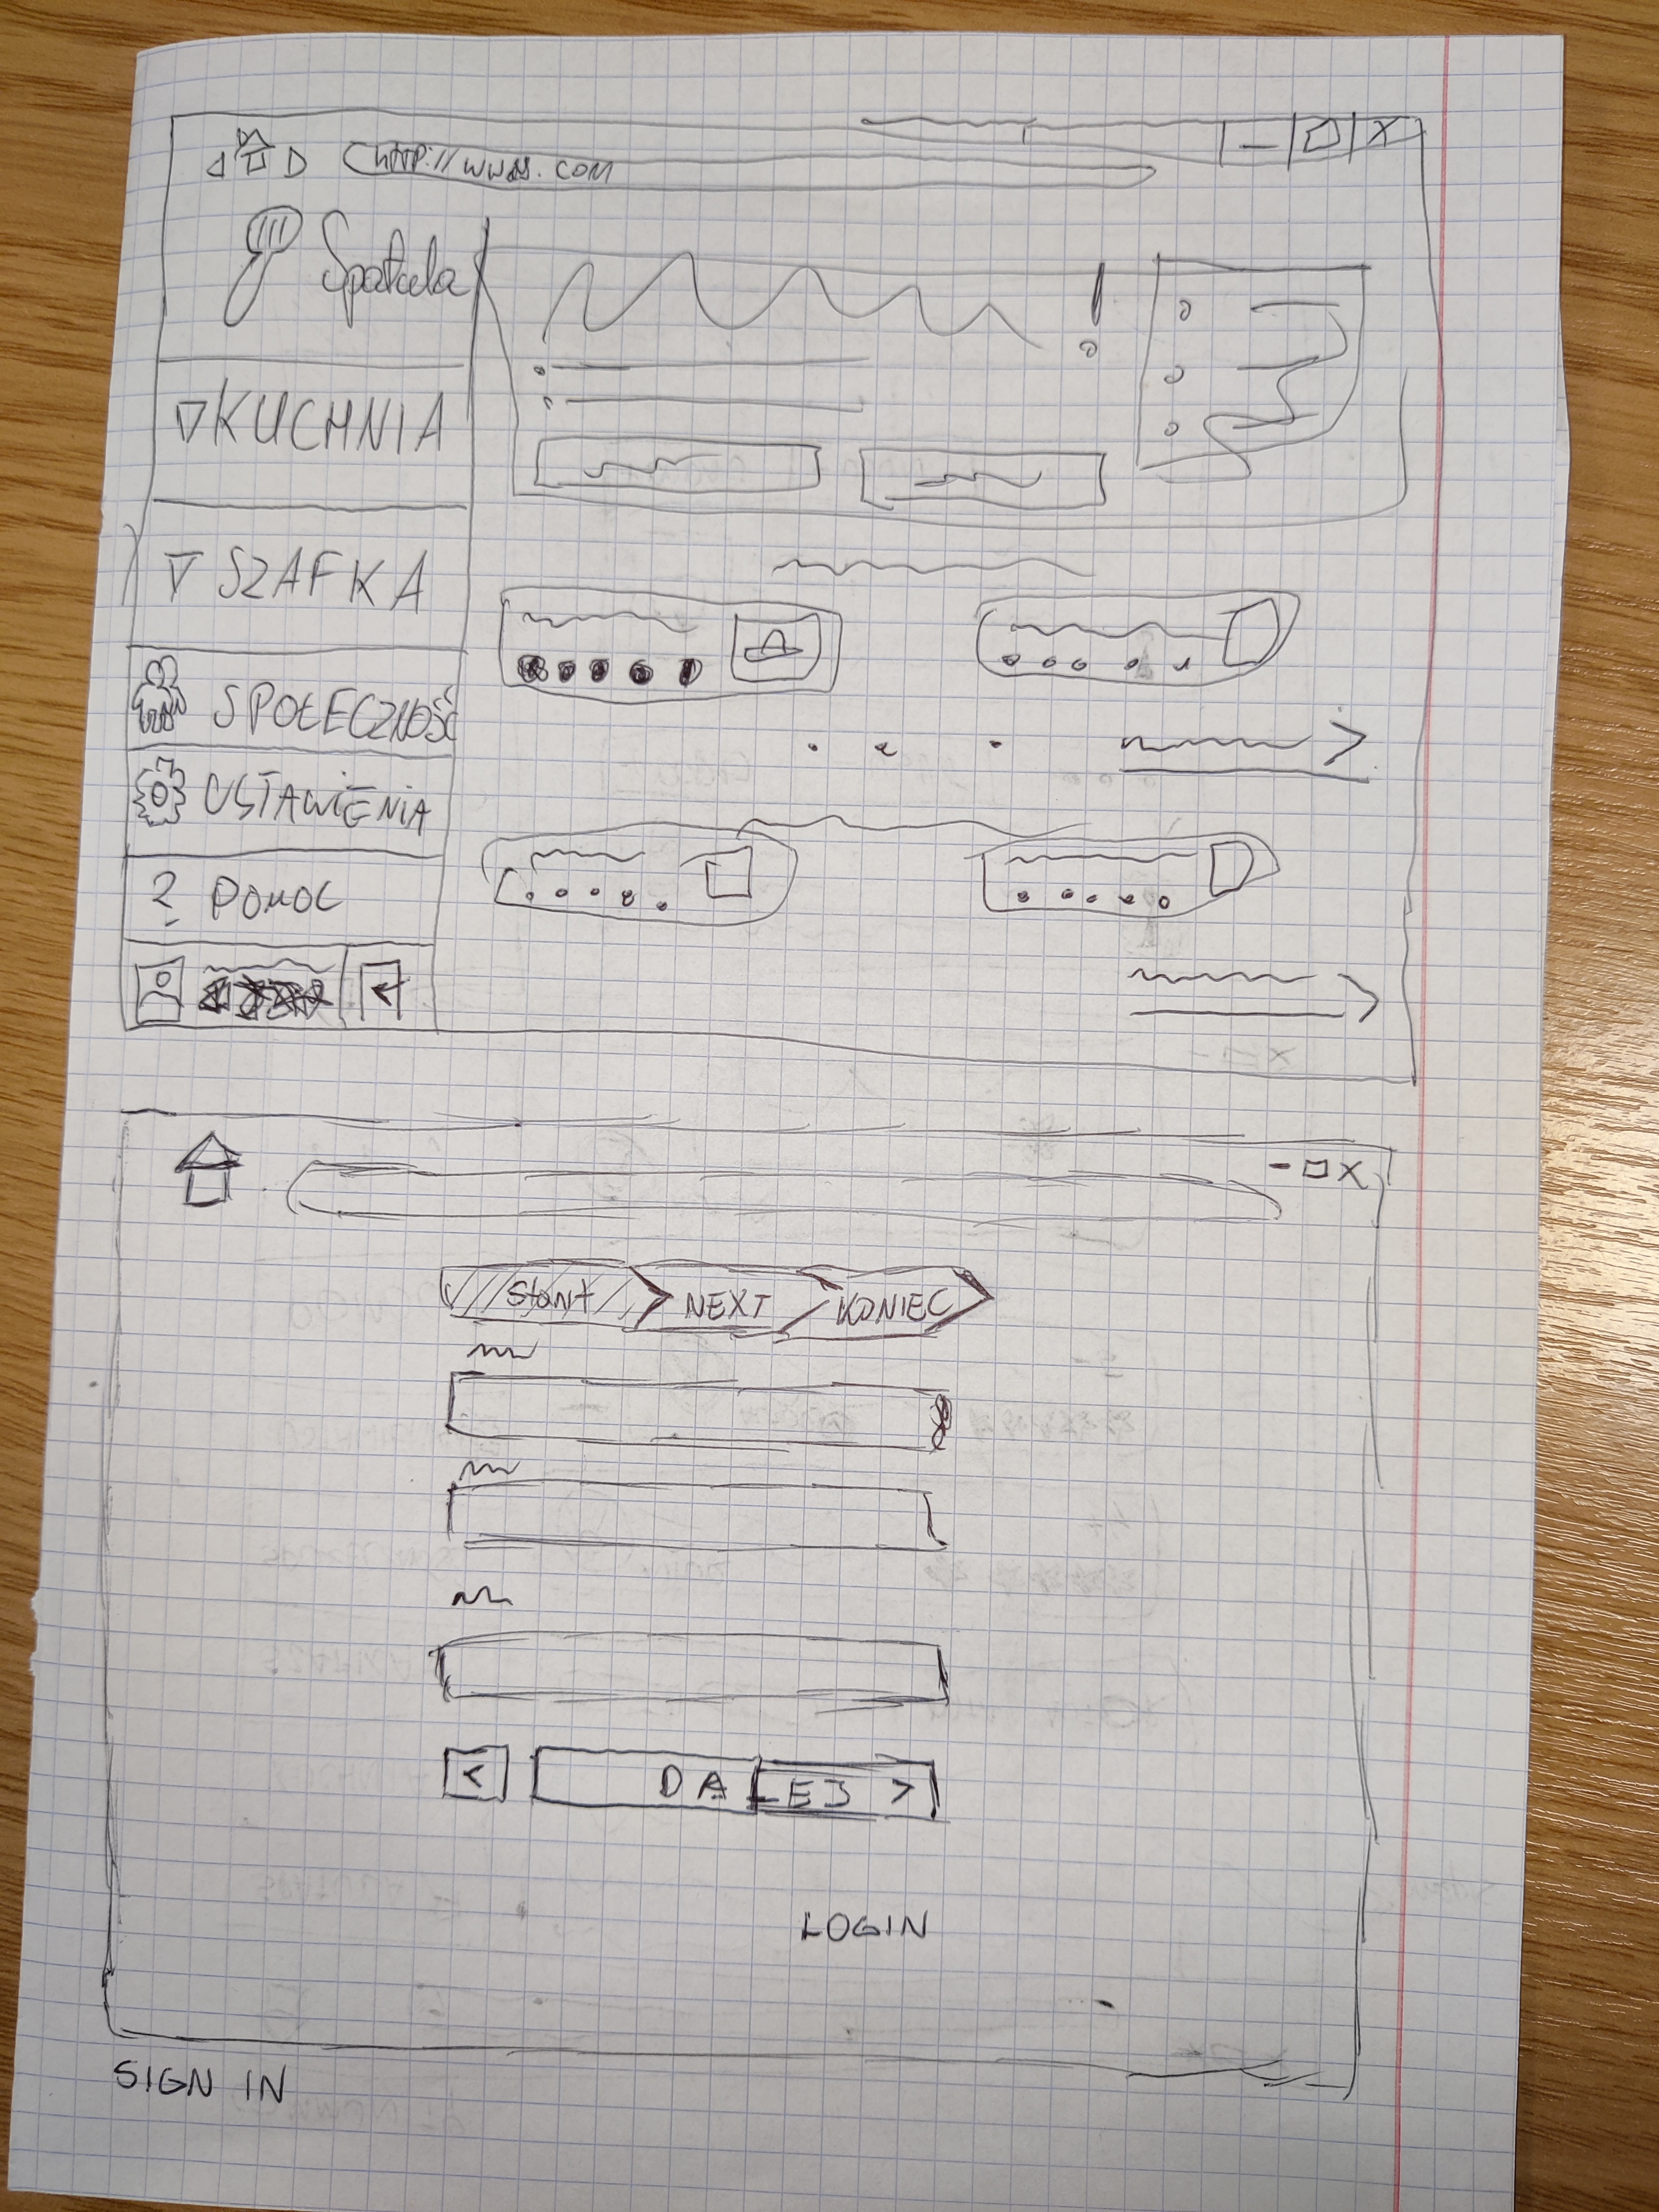 Spatula
KUCHNIA
SZAFKA
SPOŁECZNOŚĆ
USTAWIENIA
? POMOC
Start NEXT KONIEC
< DALEJ >
LOGIN
SIGN IN